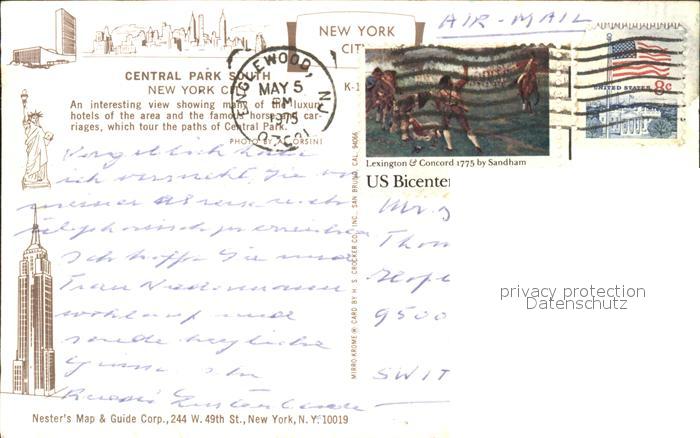 AIR-MAIL
NEW YORK
CITY
CENTRAL PARK SOUTH
NEW YORK CITY
An interesting view showing many of the luxury
hotels of the area and the famous horse and car-
riages, which tour the paths of Central Park.
PHOTO BY A. ORSINI
K-1
ENGLEWOOD, NJ
MAY 5
PM
1975
07631
UNITED STATES 8c
Lexington & Concord 1775 by Sandham
US Bicenten
Vergeblich habe
ich versucht, Sie vor
meiner Abreise noch
telephonisch zu erreichen
Ich hoffe Sie und
Frau
wohlauf und
sende herzliche
Grüsse. Ihr
MIRRO-KROME ® CARD BY H. S. CROCKER CO. INC., SAN BRUNO, CAL. 94066
Mr.
Thom
Hofl
9500
SWIT
privacy protection
Datenschutz
Nester's Map & Guide Corp., 244 W. 49th St., New York, N.Y. 10019